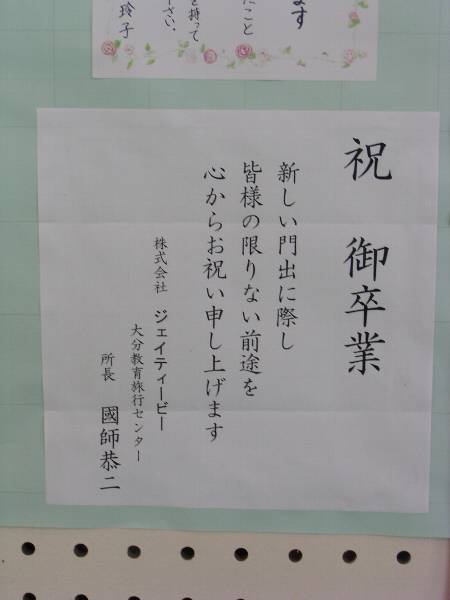 ます
たこと
を持って
さい。
玲子
祝 御卒業
新しい門出に際し
皆様の限りない前途を
心からお祝い申し上げます
株式会社 ジェイティービー
大分教育旅行センター
所長 國師恭二